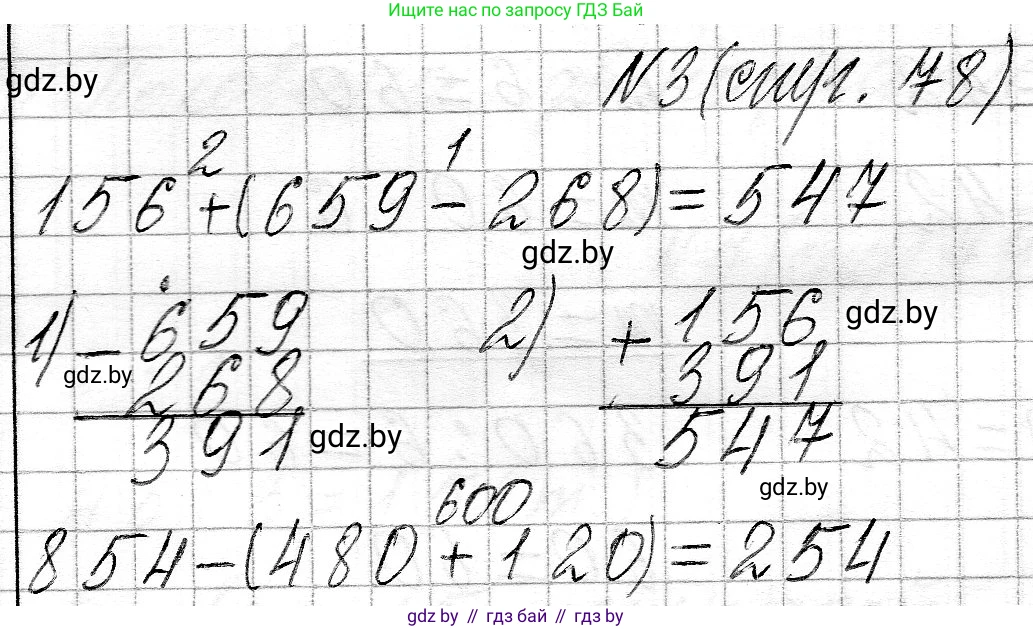 Ищите нас по запросу ГДЗ Бай
gdz.by
N3 (стр. 78)
2 1
156 + (659 - 268) = 547
gdz.by
1) - 659 2) + 156 gdz.by
gdz.by 268 391
391 gdz.by 547
gdz.by
600
854 - (480 + 120) = 254
gdz.by // гдз бай // гдз by